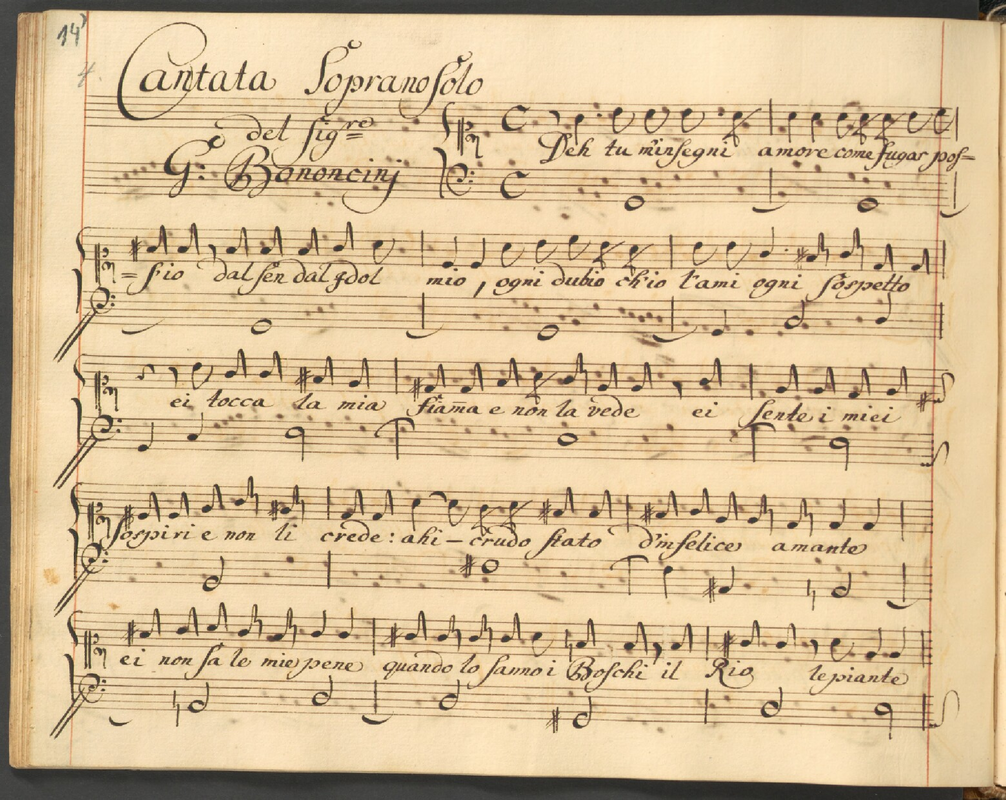 14
4.
Cantata Soprano Solo
del Sigre
G: Bononcinj
Deh tu m'insegni amore come fugar pos=
=s'io dal sen dal qdol mio, ogni dubio ch'io l'ami ogni sospetto
ei tocca la mia fiam̄a e non la vede ei sente i miei
sospiri e non li crede: ahi - crudo stato d'infelice amante
ei non sa le mie pene quando lo sanno i Boschi il Rio le piante